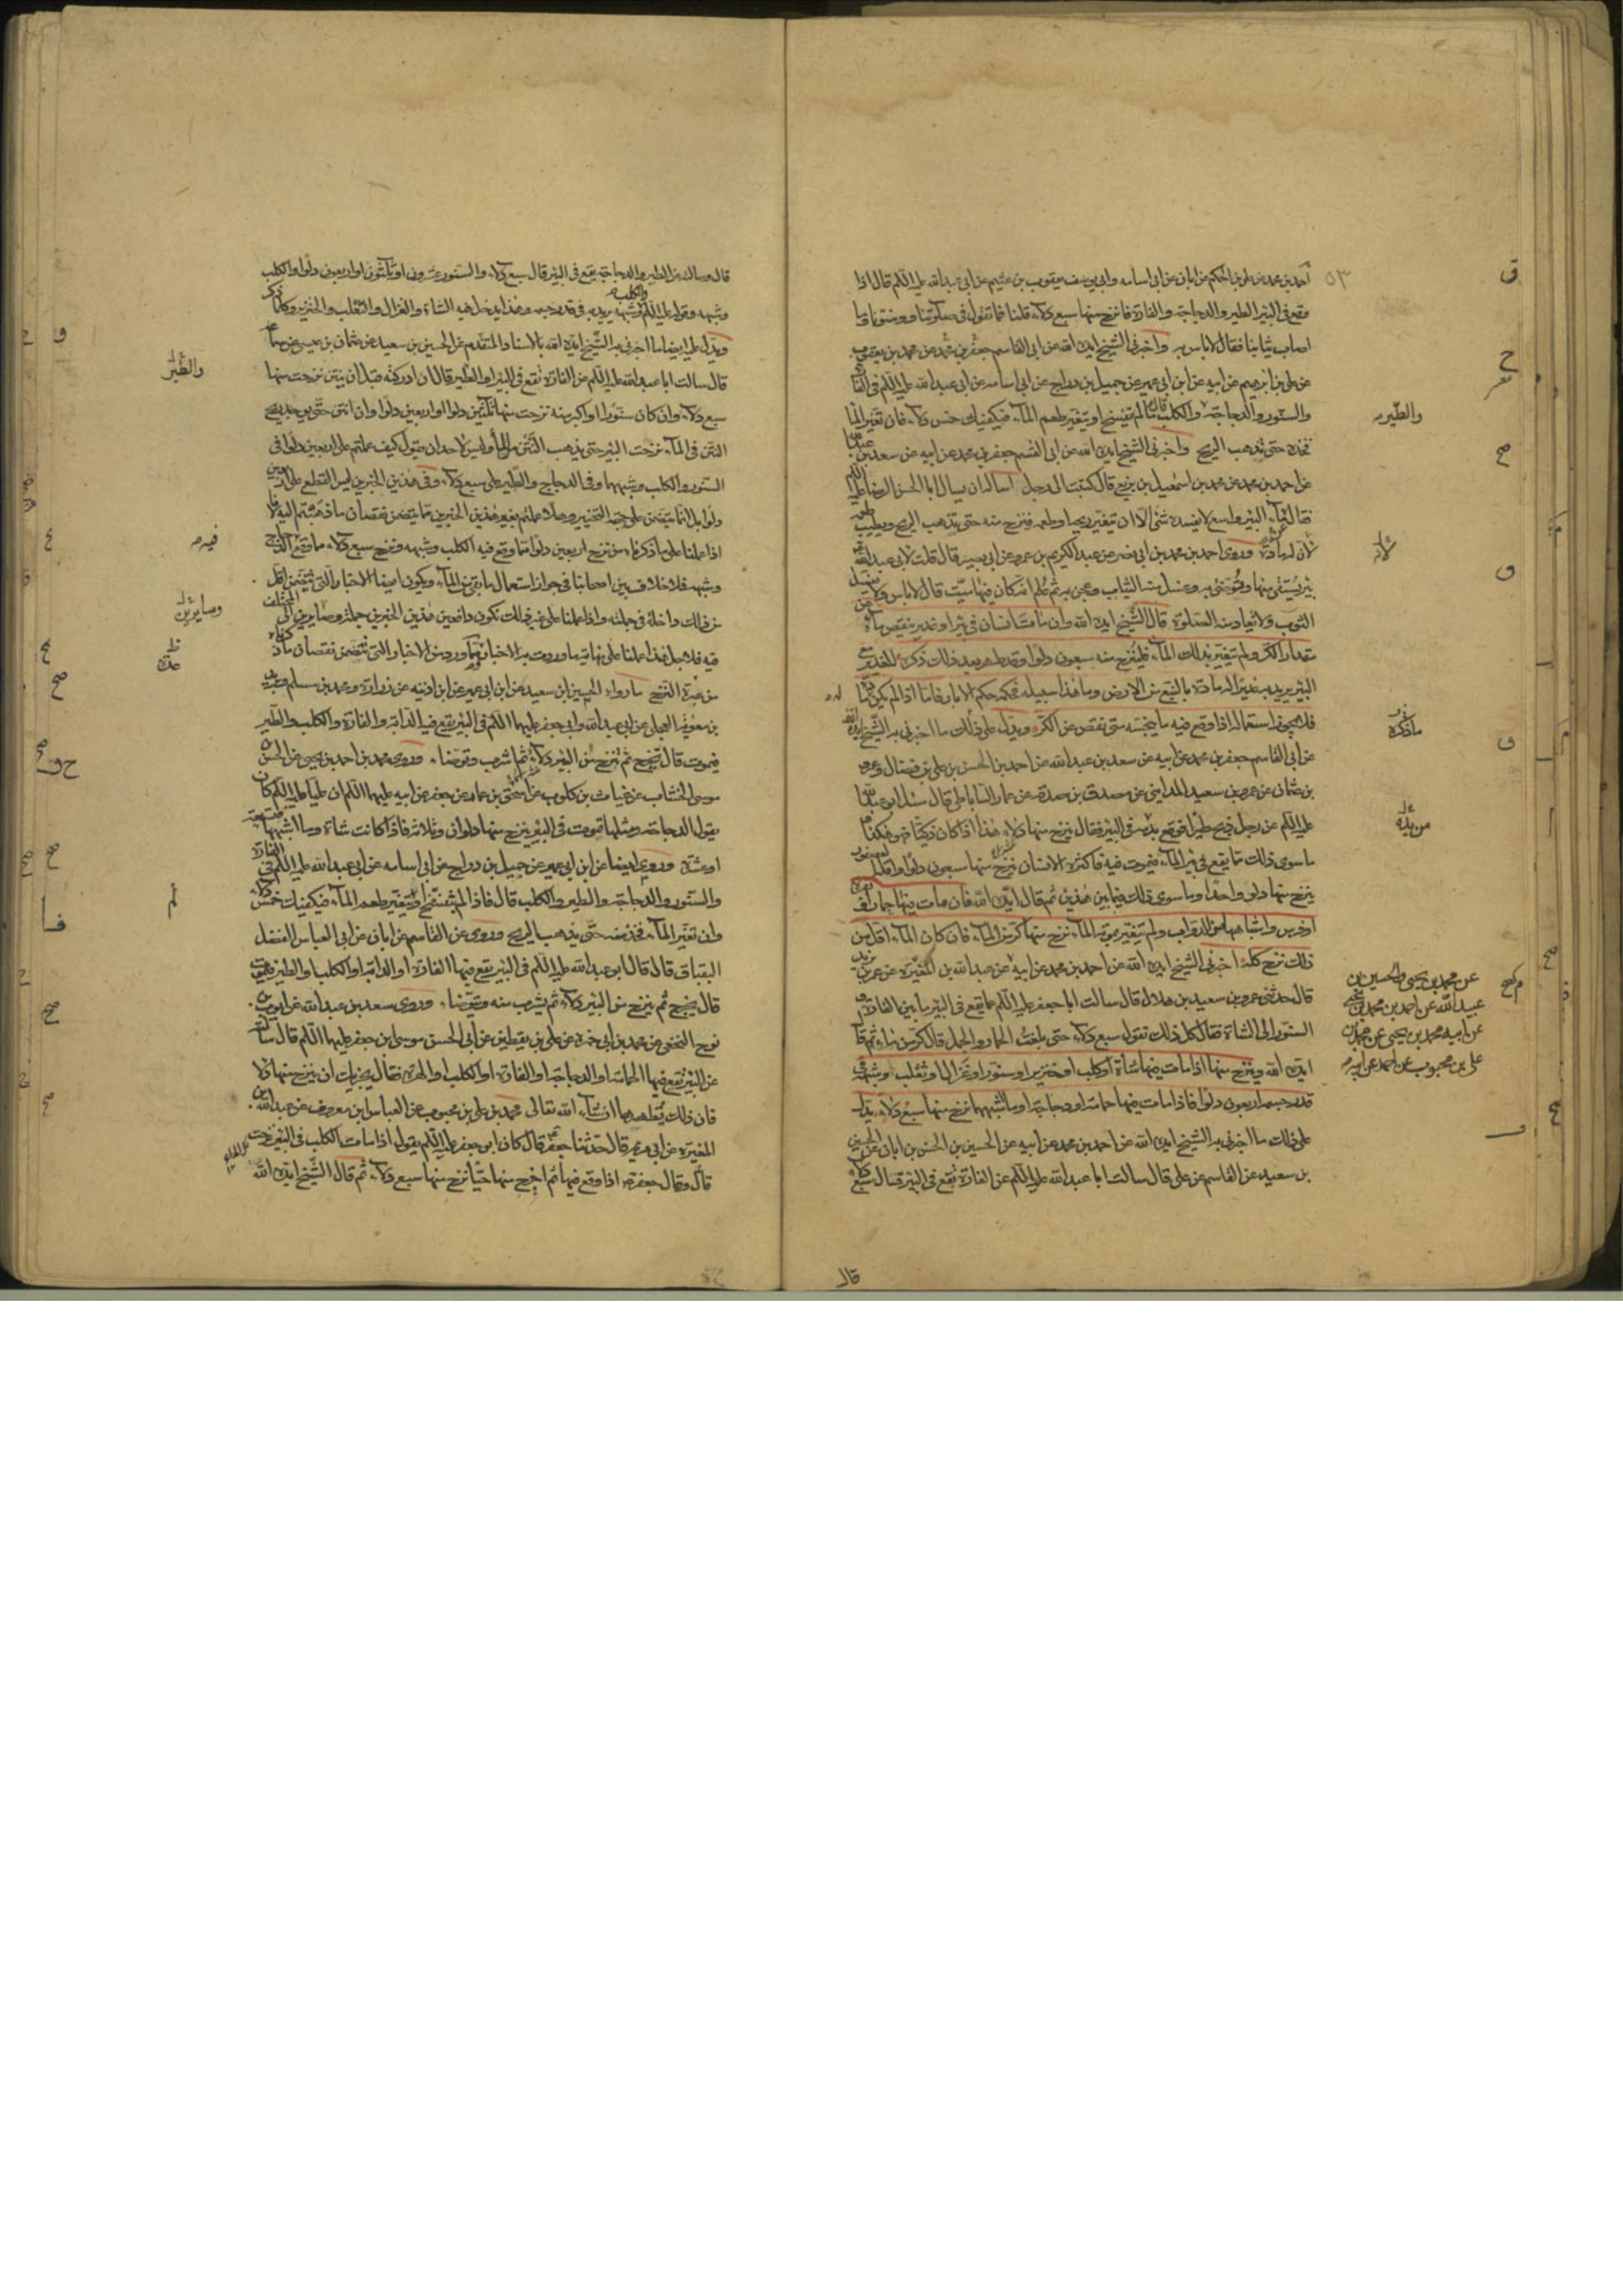 أحمد بن محمد عن علي بن الحكم عن ابان عن ابي اسامه وابي يوسف يعقوب بن عثيم عن ابي عبد الله عليه السلم قال اذا
وقع في البئر الطير والدجاجة والفارة فانزح منها سبع دلاء قلنا فما تقول في صلوتنا ووضوئنا وما
اصاب ثيابنا فقال لا باس به واخبرني الشيخ ايده الله عن ابي القاسم جعفر بن محمد عن محمد بن يعقوب
عن علي بن ابرهيم عن ابيه عن ابن ابي عمير عن جميل بن دراج عن ابي اسامه عن ابي عبد الله عليه السلم في الفارة
والسنور والدجاجة والكلب قال ما لم يتفسخ او يتغير طعم الماء فيكفيك خمس دلاء فان تغير الماء
فخذه حتى تذهب الريح واخبرني الشيخ ايده الله عن ابي القسم جعفر بن محمد عن ابيه عن سعد بن عبد الله
عن احمد بن محمد عن محمد بن اسمعيل بن بزيع قال كتبت الى رجل اساله ان يسال ابا الحسن الرضا عليه السلم
فقال ماء البئر واسع لا يفسده شئ الا ان تغير ريحه او طعمه فينزح منه حتى تذهب الريح ويطيب طعمه
لان له مادة وروى احمد بن محمد بن ابي نصر عن عبد الكريم بن عمرو عن ابي بصير قال قلت لابي عبد الله
بئر يستقى منها وتوضئ به وغسل منه الثياب وعجن به ثم علم انه كان فيها ميت قال لا باس ولا يغسل منه
الثوب ولا تعاد منه الصلوة قال الشيخ ايده الله وان مات انسان في بئر او غدير ينقص ماؤه عن
مقدار الكر ولم يتغير بذلك الماء فلينزح منه سبعون دلوا وقد طهر بعد ذلك ذكره للغدير مع
البئر يريد به غديرا له مادة بالنبع من الارض وما هذا سبيله فحكمه حكم الابار فاما اذا لم يكن له مادة
فلا يجوز استعماله اذا وقع فيه ما ينجسه متى نقص عن الكر ويدل على ذلك ما اخبرني به الشيخ ايده الله
عن ابي القاسم جعفر بن محمد عن ابيه عن سعد بن عبد الله عن احمد بن الحسن بن علي بن فضال عن عمرو
بن عثمان عن عمرو بن سعيد المدايني عن مصدق بن صدقة عن عمار الساباطي قال سئل ابو عبد الله
عليه السلم عن رجل ذبح طيرا فوقع بدمه في البئر فقال ينزح منها دلاء هذا اذا كان ذكيا فهو هكذا
ما سوى ذلك مما يقع في بئر الماء فيموت فيه فاكثره الانسان ينزح منها سبعون دلوا واقله العصفور
ينزح منها دلو واحد وما سوى ذلك فيما بين هذين ثم قال ايده الله فان مات فيها حمار او بقرة
او فرس واشباهها من الدواب ولم يتغير بموته الماء نزح منها كر من الماء فان كان الماء اقل من
ذلك نزح كله اخبرني الشيخ ايده الله عن احمد بن محمد عن ابيه عن عبد الله بن المغيرة عن عمر بن يزيد
قال حدثني عمرو بن سعيد بن هلال قال سالت ابا جعفر عليه السلم عما يقع في البئر ما بين الفارة و
السنور الى الشاة فقال كل ذلك نقول سبع دلاء حتى بلغت الحمار والجمل قال كر من ماء ثم قال
ايده الله وينزح منها اذا مات فيها شاة او كلب او خنزير او سنور او غزال او ثعلب او شبهه في
قدر جسمه اربعون دلوا فاذا مات فيها حمامة او دجاجة او ما اشبههما نزح منها سبع دلاء يدل
على ذلك ما اخبرني به الشيخ ايده الله عن احمد بن محمد عن ابيه عن الحسين بن الحسن بن ابان عن الحسين
بن سعيد عن القاسم عن علي قال سالت ابا عبد الله عليه السلم عن الفارة تقع في البئر قال سبع دلاء
قال
٥٣
والطير
لان
ماذكره
من بدنه
عن محمد بن يحيى والحسين بن
عبيد الله عن احمد بن محمد بن يحيى
عن ابيه محمد بن يحيى عن محمد بن
علي بن محبوب عن احمد عن ابيه
قال وسالته عن الطير والدجاجة يقع في البئر قال سبع دلاء والسنور عشرون او ثلثون او اربعون دلوا والكلب
وشبهه وقوله عليه السلم والكلب وشبهه يريد به في قدر جسمه وهذا يدخل فيه الشاة والغزال والثعلب والخنزير وكلما ذكر
ويدل عليه ايضا ما اخبرني به الشيخ ايده الله بالاسناد المتقدم عن الحسين بن سعيد عن عثمان بن عيسى عن سماعة
قال سالت ابا عبد الله عليه السلم عن الفارة تقع في البئر او الطير قال ان ادركته قبل ان ينتن نزحت منها
سبع دلاء وان كان سنورا او اكبر منه نزحت منها ثلثين دلوا او اربعين دلوا وان انتن حتى يوجد ريح
النتن في الماء نزحت البئر حتى يذهب النتن من الماء وليس لاحد ان يقول كيف عملتم على اربعين دلوا في
السنور والكلب وشبههما وفي الدجاج والطير على سبع دلاء وفي هذين الخبرين ليس القطع على اربعين
دلوا بل انما يتضمن على جهة التخيير وهلا عملتم بغير هذين الخبرين مما يتضمن نقصان ما ذهبتم اليه لانا
اذا عملنا على ما ذكرناه من نزح اربعين دلوا مما وقع فيه الكلب وشبهه ونزح سبع دلاء ما وقع فيه الدجاج
وشبهه فلا خلاف بين اصحابنا في جواز استعمال ما بقي من الماء ويكون ايضا الاخبار التي تتضمن اقل
من ذلك داخلة في جملته واذا عملنا على غير ذلك نكون دافعين هذين الخبرين جملة وصايرين الى المختلف
فيه فلاجل هذا عملنا على نهاية ما وردت به الاخبار فاما ورد من الاخبار التي تتضمن نقصان ما ذكرناه
من عدة النزح ما رواه الحسين بن سعيد عن ابن ابي عمير عن ابن اذينه عن زرارة ومحمد بن مسلم وبريد
بن معوية العجلي عن ابي عبد الله وابي جعفر عليهما السلم في البئر يقع فيها الدابة والفارة والكلب والطير
فيموت قال يخرج ثم ينزح من البئر دلاء ثم اشرب وتوضا وروى محمد بن احمد بن يحيى عن الحسن بن
موسى الخشاب عن غياث بن كلوب عن اسحق بن عمار عن جعفر عن ابيه عليهما السلم ان عليا عليه السلم كان
يقول الدجاجة ومثلها تموت في البئر ينزح منها دلوان وثلاثة فاذا كانت شاة وما اشبهها فتسعة
او عشرة وروى ايضا عن ابن ابي عمير عن جميل بن دراج عن ابي اسامه عن ابي عبد الله عليه السلم في الفارة
والسنور والدجاجة والطير والكلب قال فاذا لم يتفسخ او يتغير طعم الماء فيكفيك خمس دلاء
وان تغير الماء فخذ منه حتى يذهب الريح وروى عن القاسم عن ابان عن ابي العباس الفضل
البقباق قال قال ابو عبد الله عليه السلم في البئر يقع فيها الفارة او الدابة او الكلب او الطير فيموت
قال يخرج ثم ينزح من البئر دلاء ثم يشرب منه ويتوضا وروى سعد بن عبد الله عن ايوب بن
نوح النخعي عن محمد بن ابي حمزة عن علي بن يقطين عن ابي الحسن موسى بن جعفر عليهما السلم قال سالته
عن البئر تقع فيها الحمامة او الدجاجة او الفارة او الكلب او الهرة فقال يجزيك ان ينزح منها دلاء
فان ذلك يطهرها ان شاء الله تعالى محمد بن علي بن محبوب عن العباس بن معروف عن عبد الله بن
المغيرة عن ابي مريم قال حدثنا جعفر قال كان ابو جعفر عليه السلم يقول اذا مات الكلب في البئر نزحت
قال وقال جعفر اذا وقع فيها ثم اخرج منها حيا نزح منها سبع دلاء ثم قال الشيخ ايده الله
والطير
فيه
وصايرين
عدة